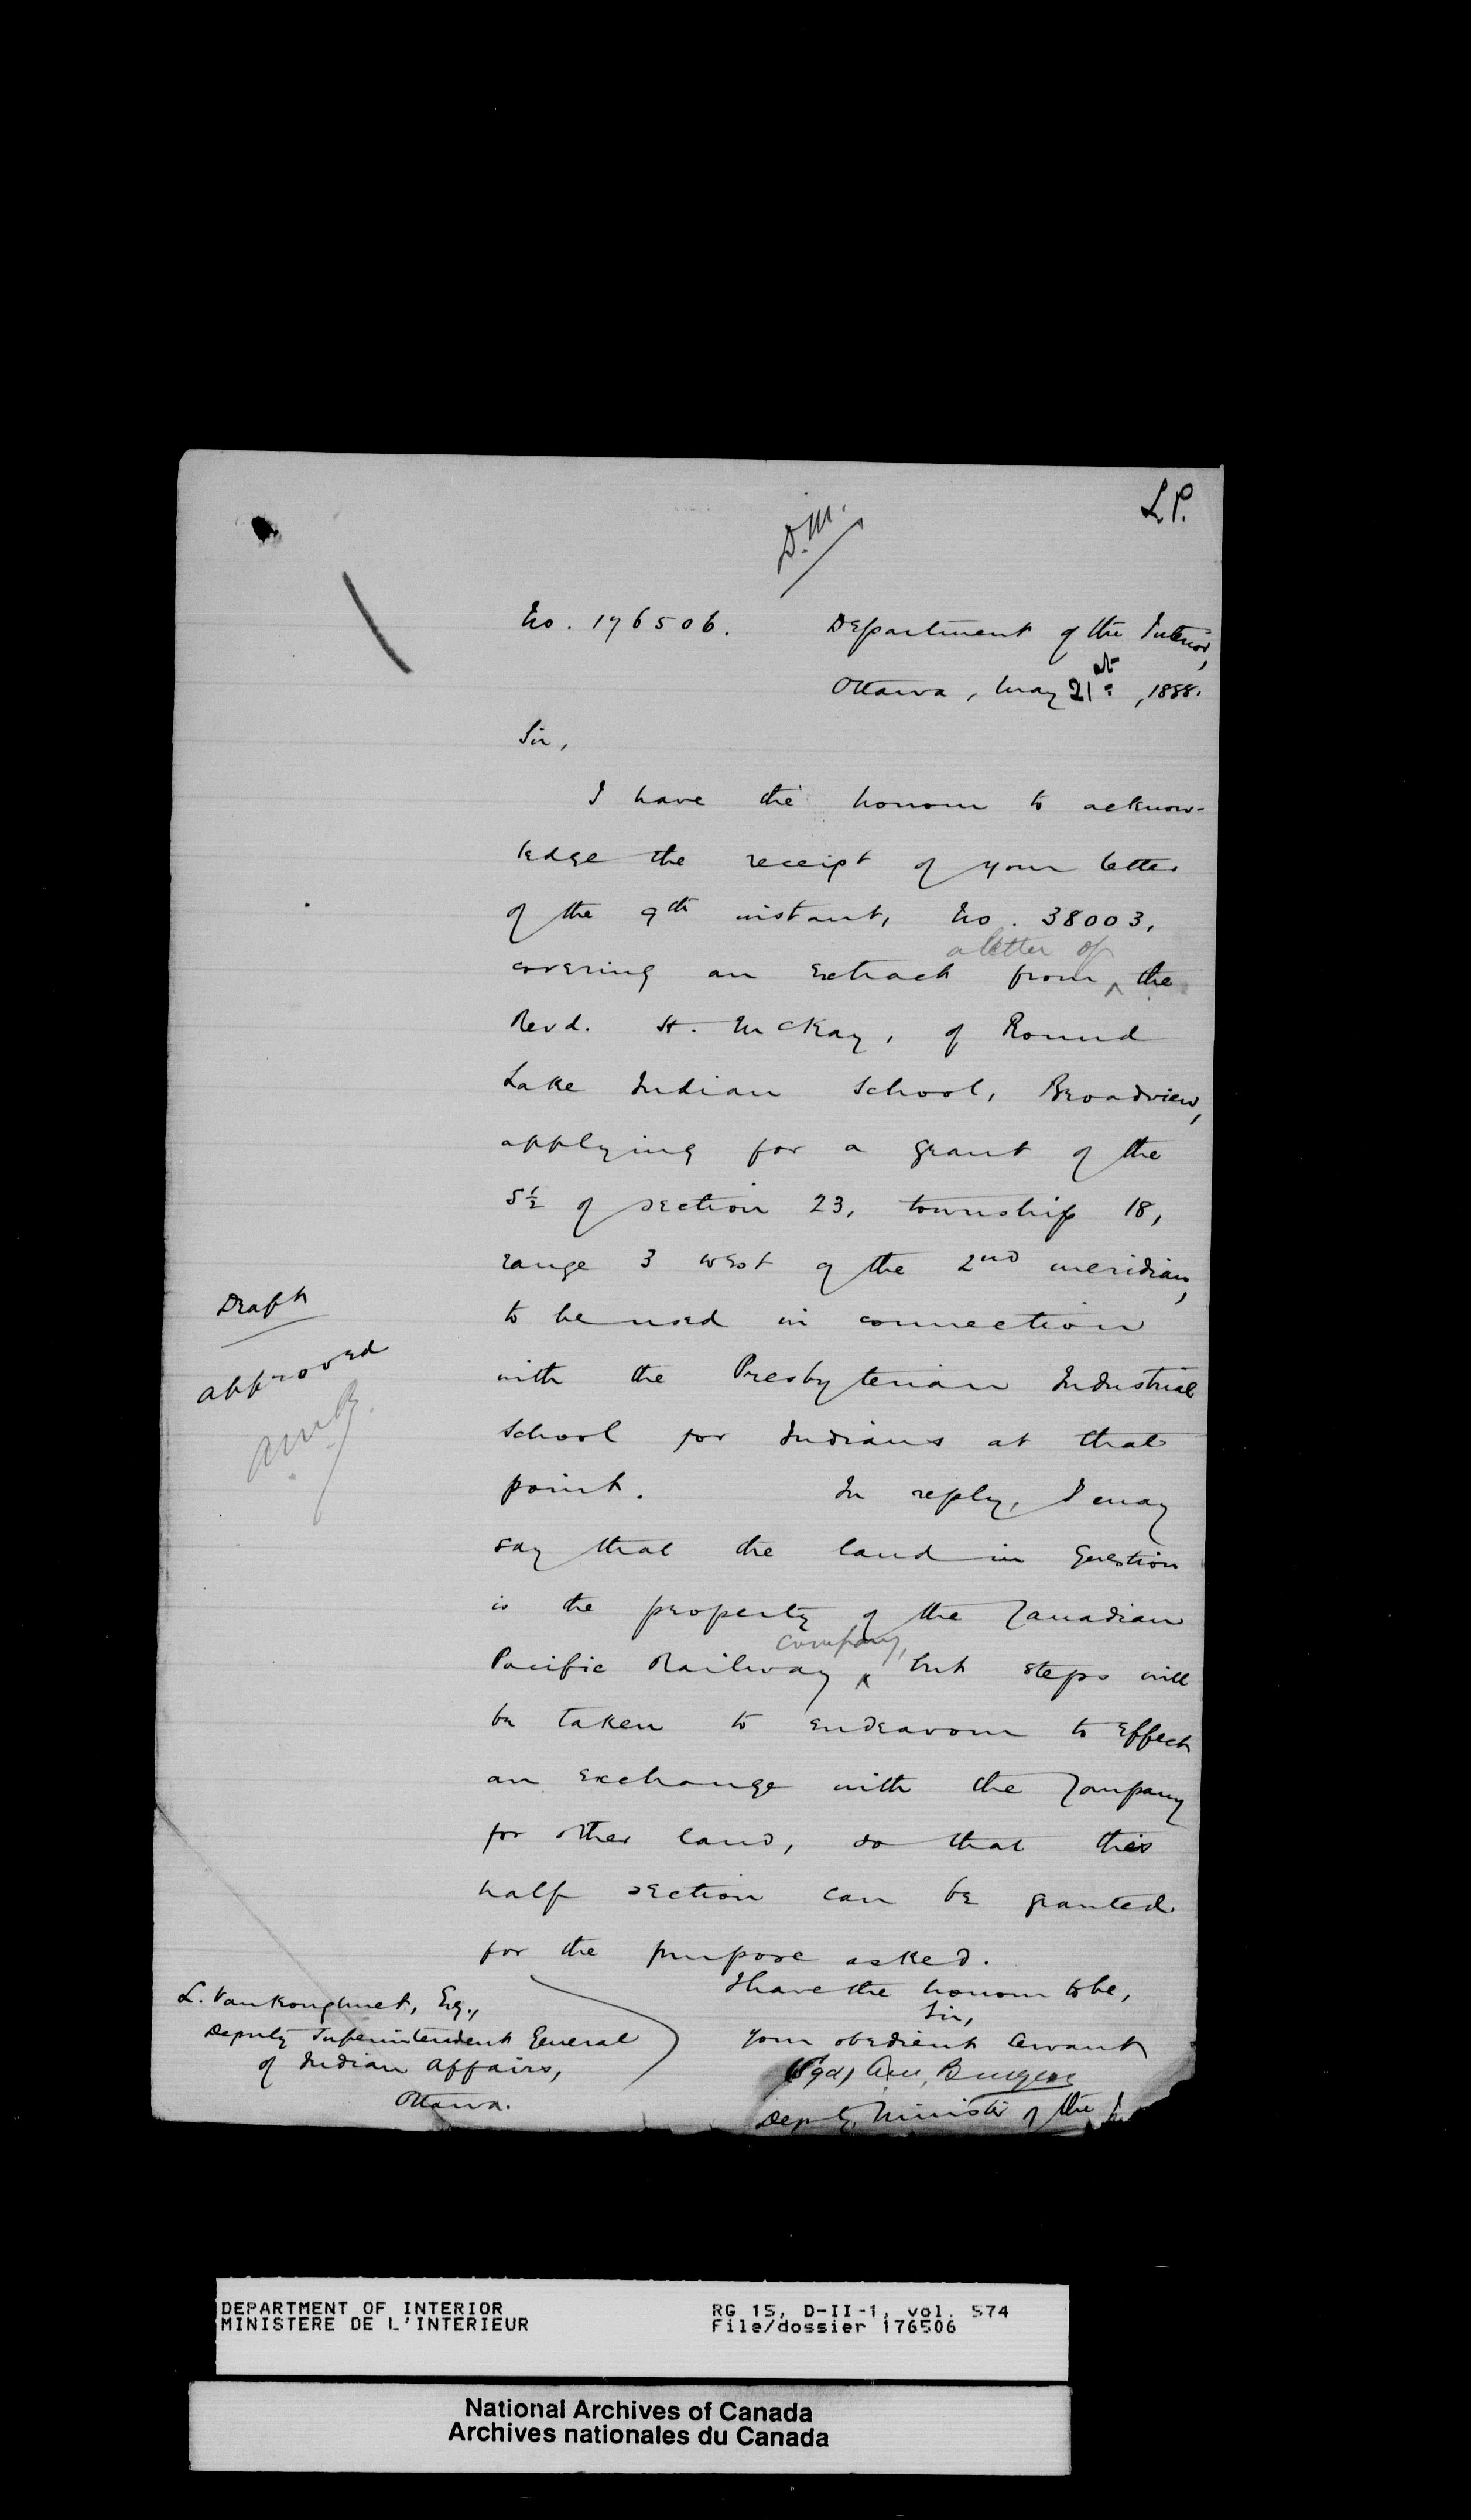 L.P.
D.M.
No. 176506.
Department of the Interior,
Ottawa, May 21st, 1888.
Sir,
I have the honour to acknow-
ledge the receipt of your letter
of the 9th instant, No. 38003,
covering an extract from a letter of the
Revd. H. McKay, of Round
Lake Indian School, Broadview,
applying for a grant of the
S½ of section 23, township 18,
range 3 west of the 2nd meridian,
to be used in connection
with the Presbyterian Industrial
School for Indians at that
point. In reply, I may
say that the land in question
is the property of the Canadian
Pacific Railway Company, but steps will
be taken to endeavour to effect
an exchange with the Company
for other land, so that this
half section can be granted
for the purpose asked.
I have the honour to be,
Sir,
Your obedient servant
(Sgd) A.M. Burgess
Deputy Minister of the
Draft
approved
A.M.B.
L. Vankoughnet, Esq.,
Deputy Superintendent General
of Indian Affairs,
Ottawa.
DEPARTMENT OF INTERIOR
MINISTERE DE L'INTERIEUR
RG 15, D-II-1, vol. 574
File/dossier 176506
National Archives of Canada
Archives nationales du Canada